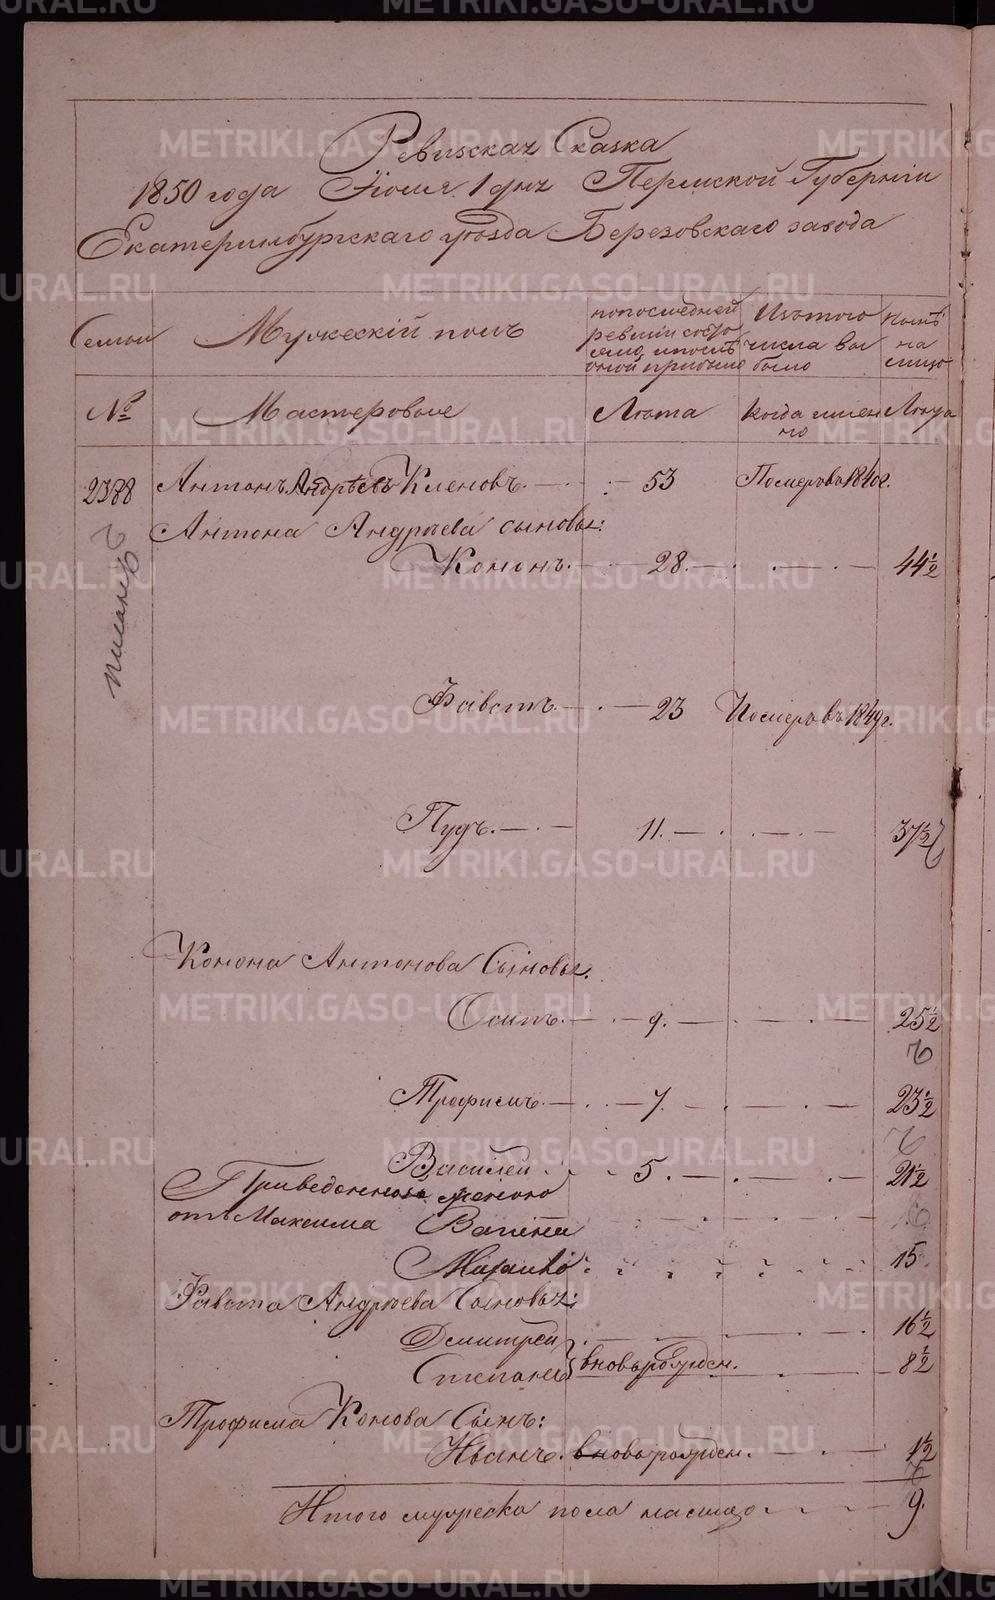 Ревизская Сказка
1850 года Июля 1 дня Пермской Губернiи
Екатеринбургскаго уѣзда Березовскаго завода
Семьи
Мужескiй полъ
по последней ревизiи состояло, и послѣ оной прибыло
Изъ того числа выбыло
Нынѣ на лицо
№
Мастеровые
Лѣта
Когда именно
Лѣта
2388 Антонъ Андрѣевъ Кленовъ. 53 Померъ въ 1840 г.
писанъ
Антона Андрѣева сыновья:
Кононъ. 28. 44½
Фавстъ. 23 Померъ въ 1849 г.
Пудъ. 11. 37½
Конона Антонова Сыновья.
Осипъ. 9. 25½
Трофимъ. 7. 23½
Василей 5. 21½
Приведенного женою
отъ Максима
15.
Фавста Андрѣева Сыновья:
Дмитрей 16½
Степанъ вновь рожден. 8½
Трофима Конова Сынъ:
Иванъ. вновь рожден. 1½
Итого мужеска пола на лицо 9.
METRIKI.GASO-URAL.RU